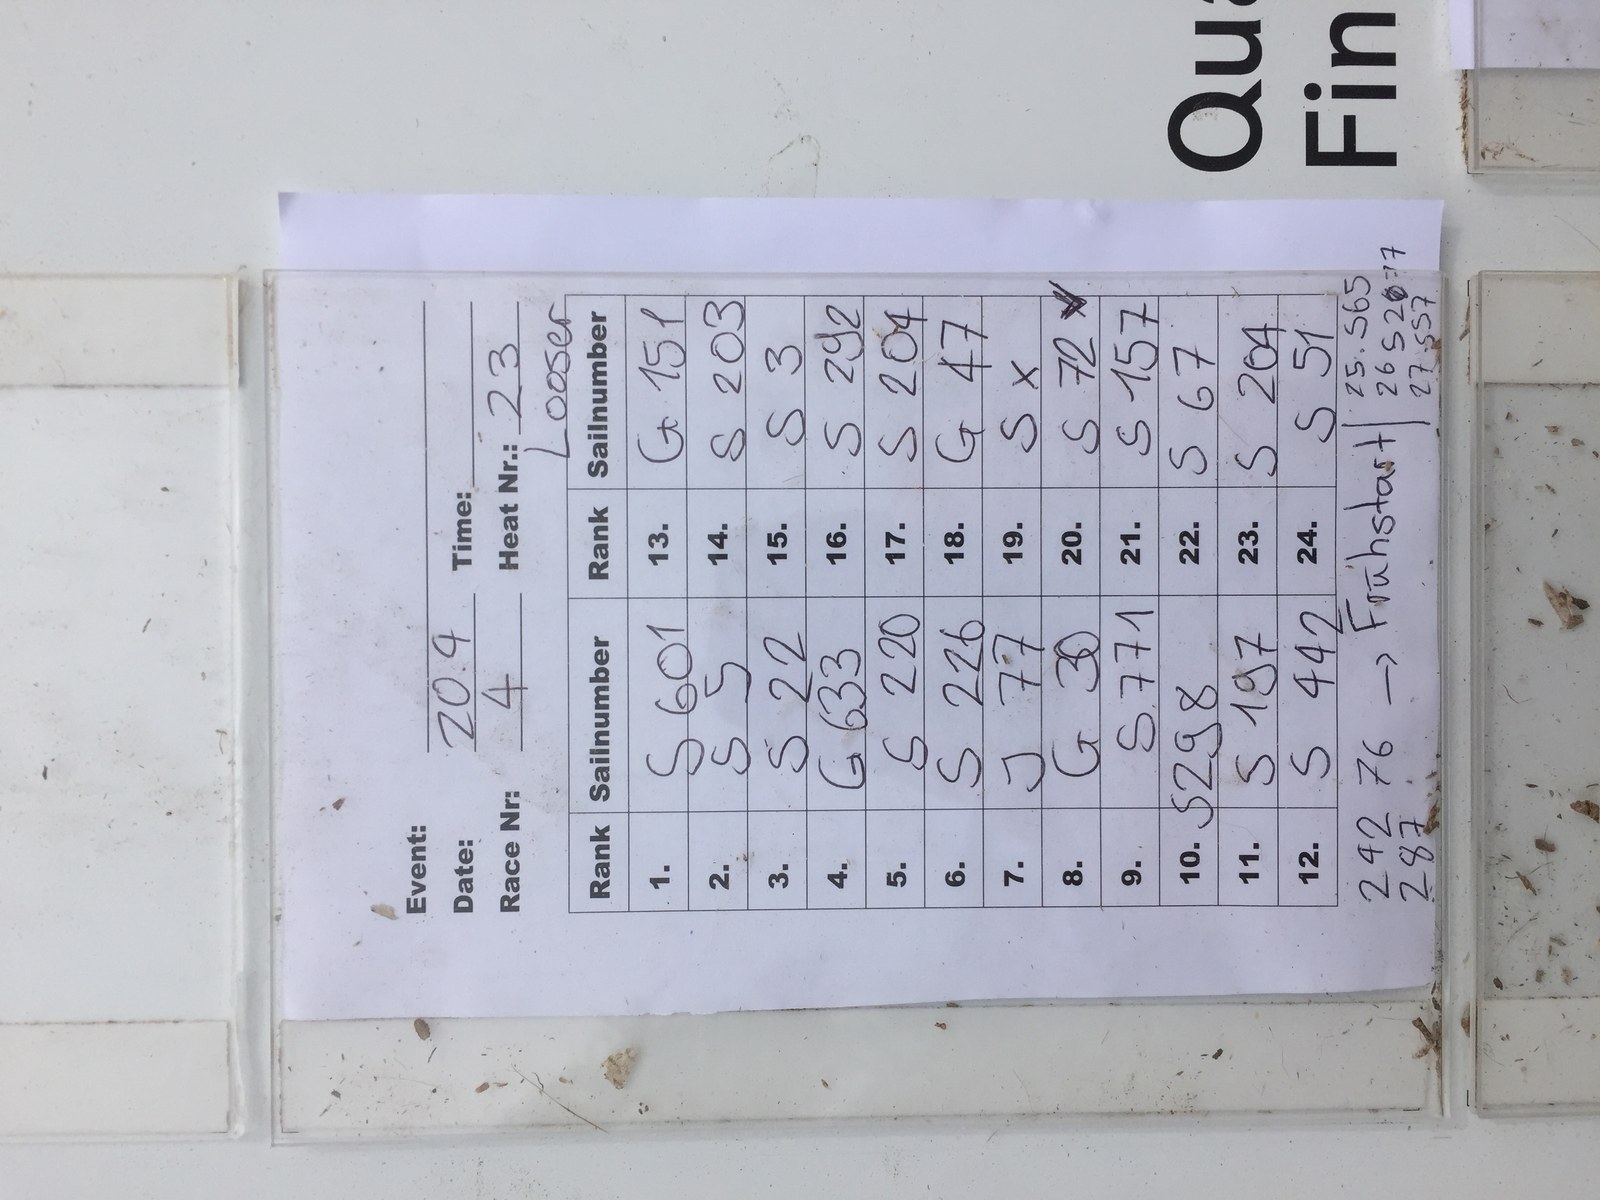 Event:
Date: 20.4 Time:
Race Nr: 4 Heat Nr.: 23
Looser
Rank Sailnumber Rank Sailnumber
1. S 601 13. G 151
2. S 5 14. S 203
3. S 22 15. S 3
4. G 633 16. S 292
5. S 220 17. S 204
6. S 226 18. G 47
7. J 77 19. S x
8. G 30 20. S 72
9. S 771 21. S 157
10. S298 22. S 67
11. S 197 23. S 204
12. S 442 24. S 51
242 76 → Frühstart 25. S65
287 26 S20
27. S57
Qua
Fin